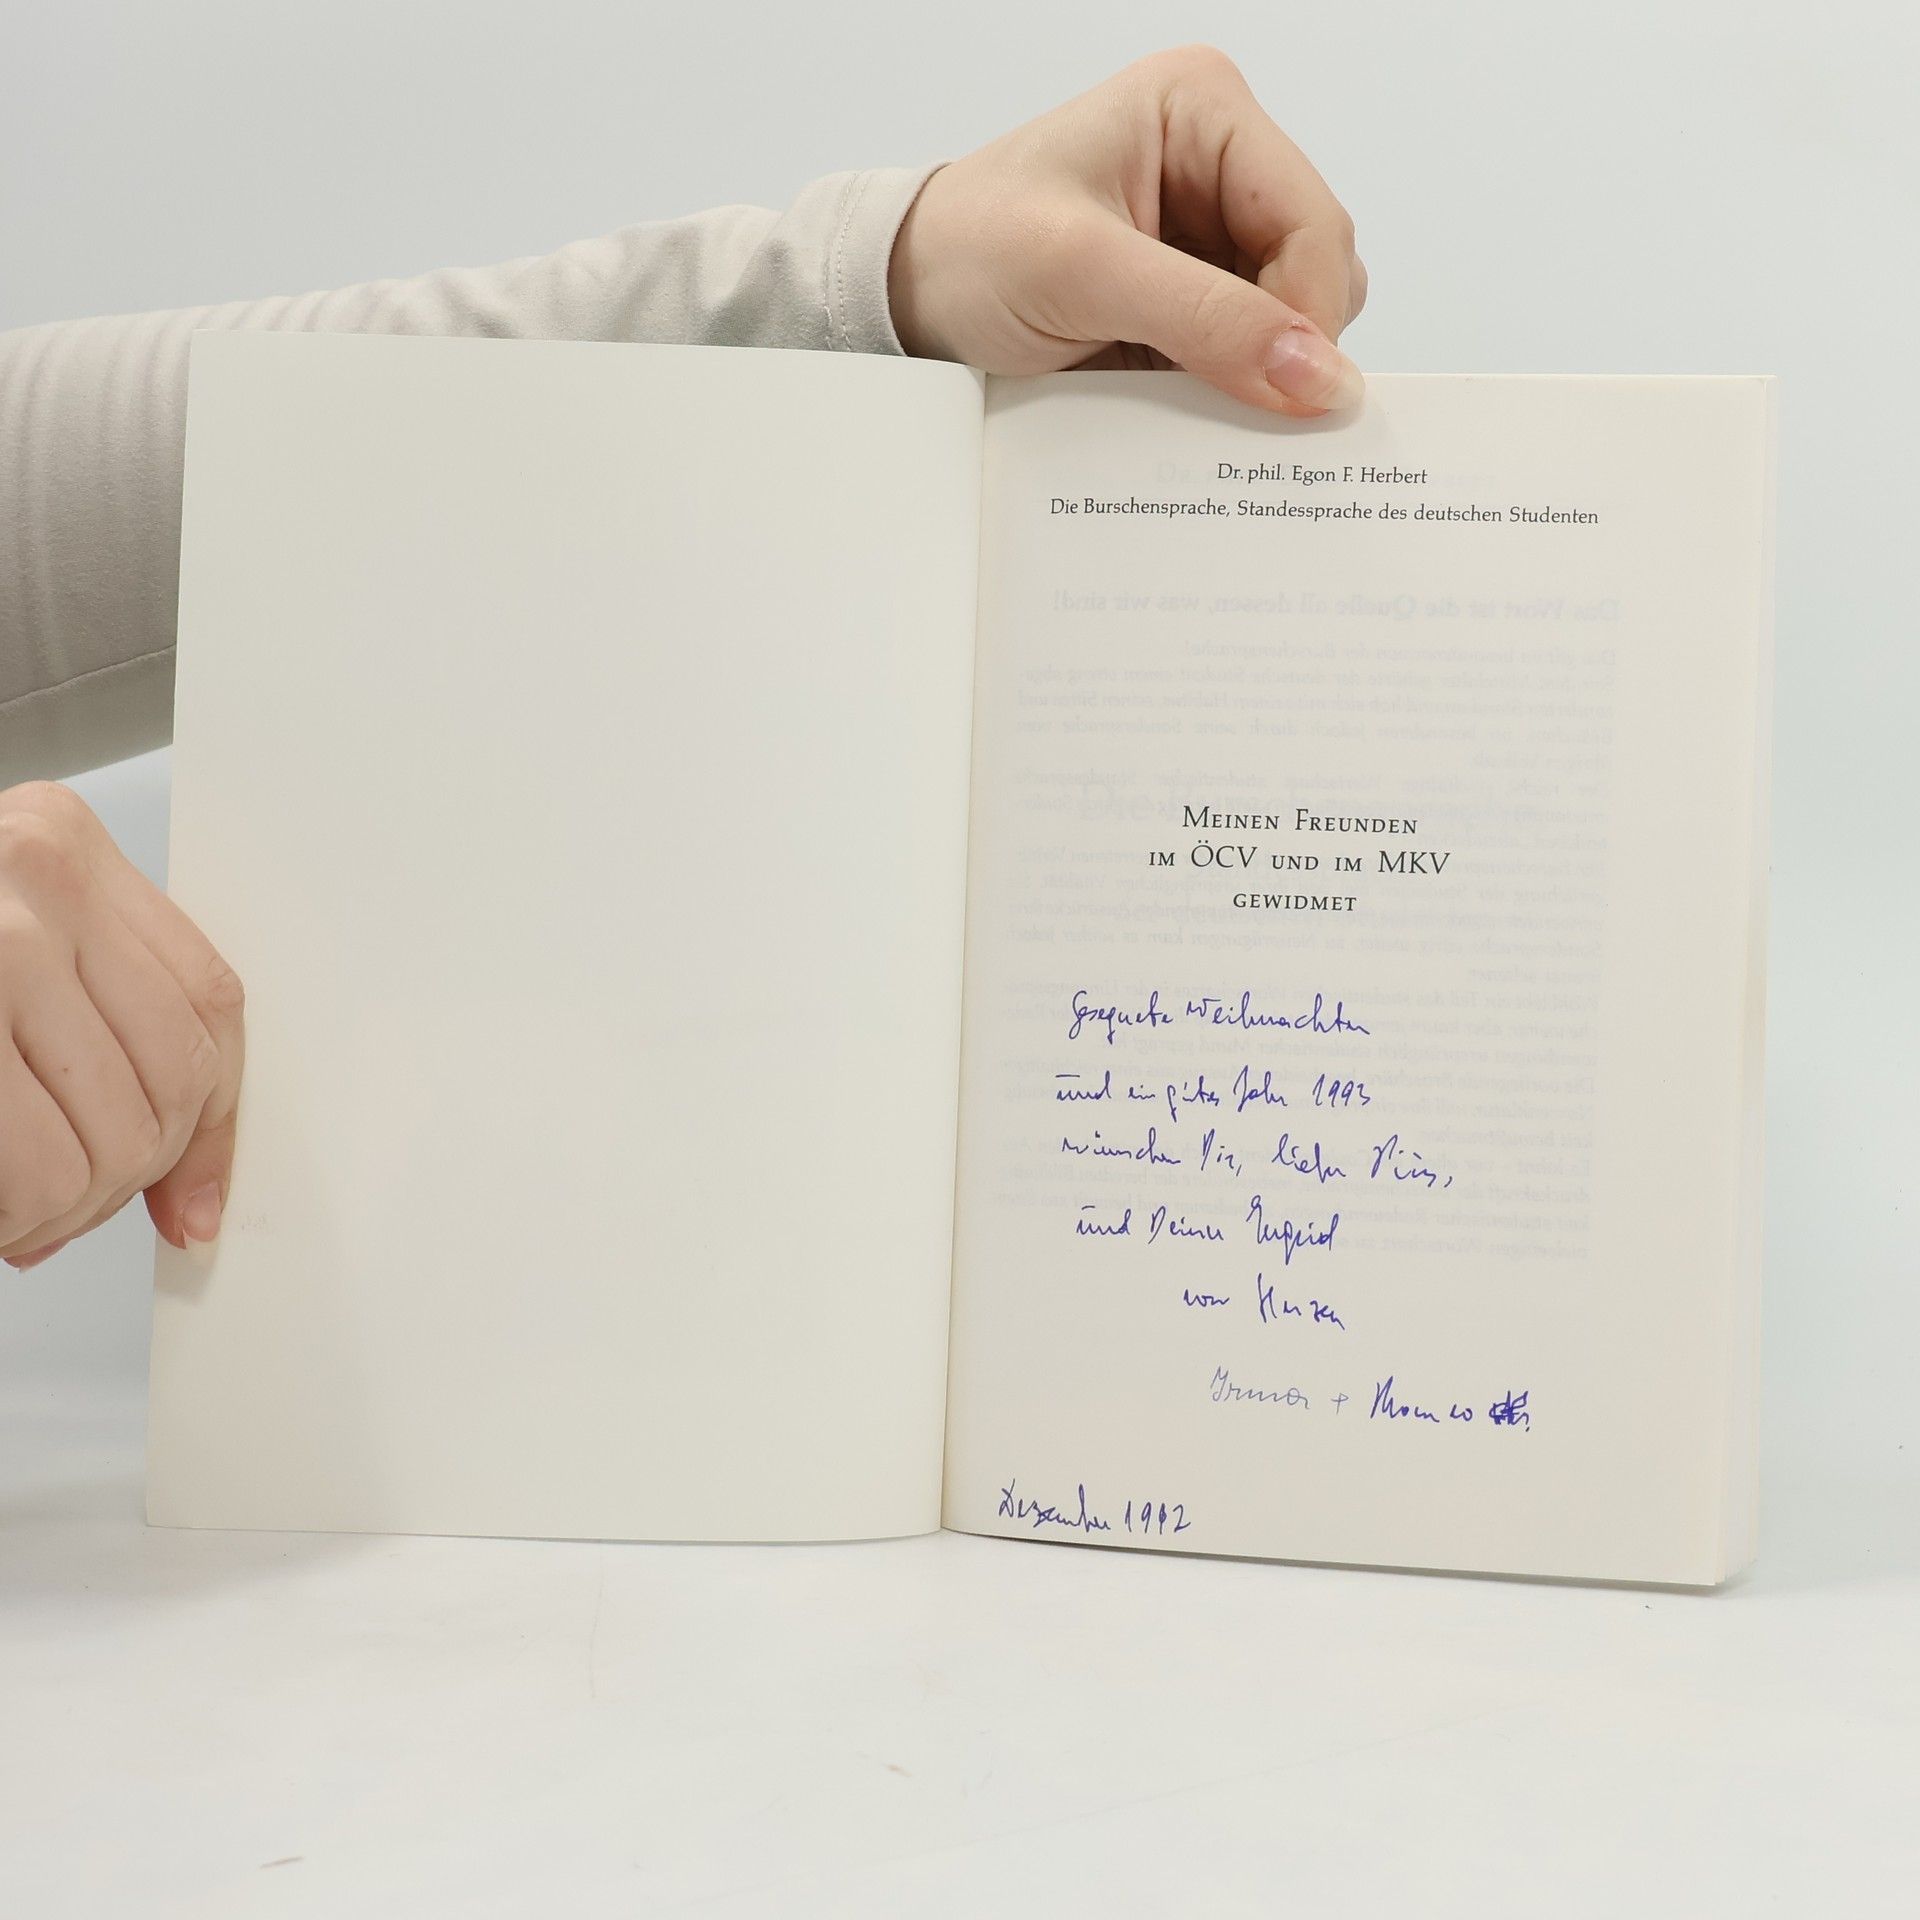 Dr. phil. Egon F. Herbert
Die Burschensprache, Standessprache des deutschen Studenten
MEINEN FREUNDEN
IM ÖCV UND IM MKV
GEWIDMET
Gesegnete Weihnachten
und ein gutes Jahr 1993
wünschen Dir, lieber
und Deiner Ingrid
von Herzen
Irmgard +
Dezember 1992